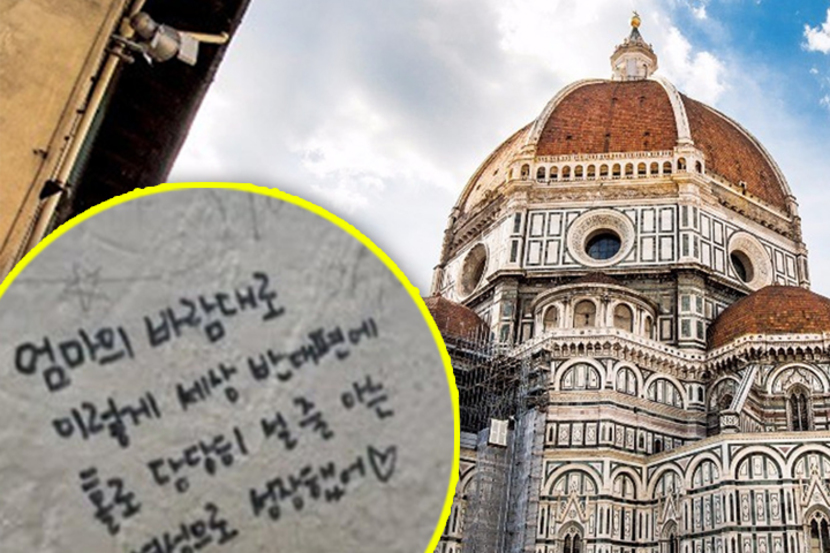 엄마의 바람대로
이렇게 세상 반대편에
홀로 당당히 설 줄 아는
여성으로 성장했어♡